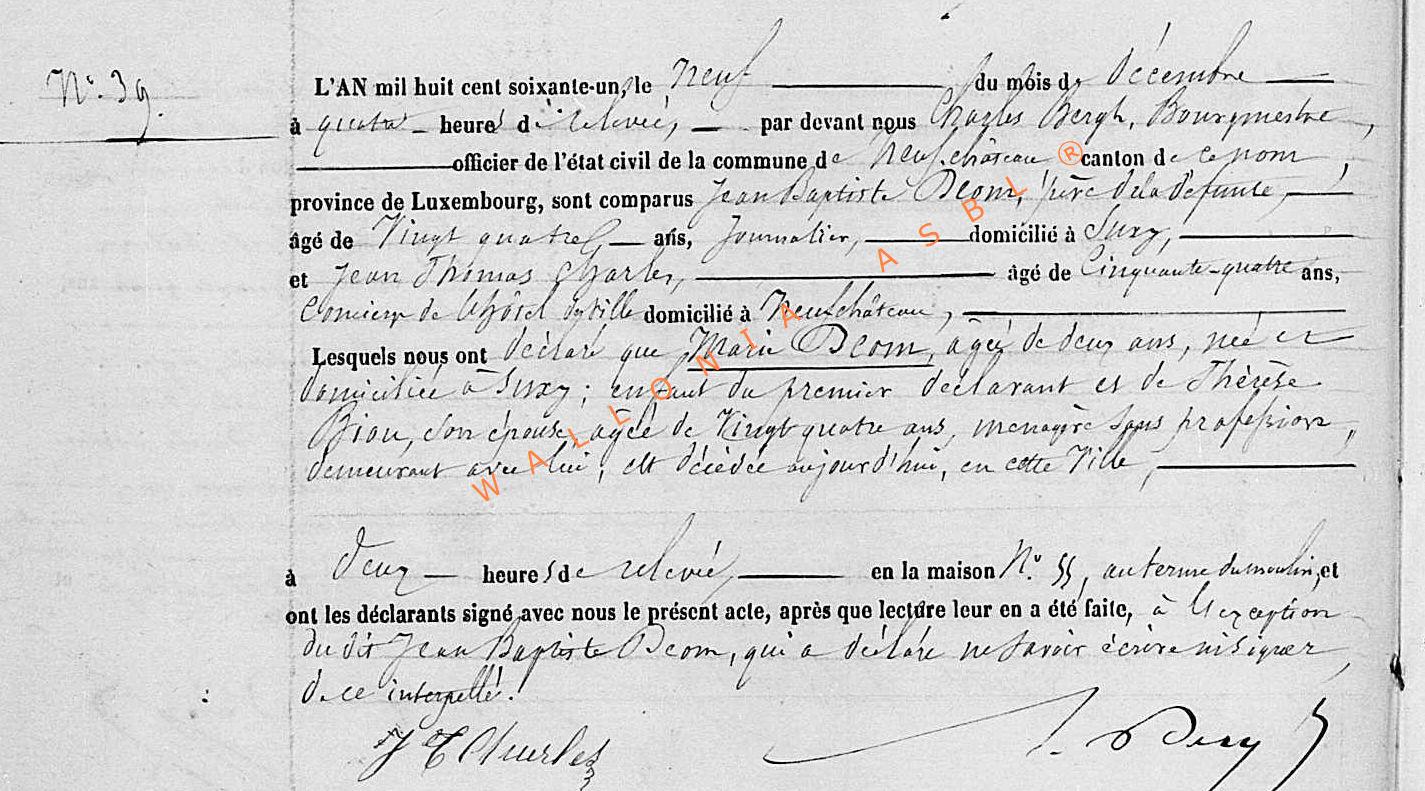 N° 39.
L'AN mil huit cent soixante-un, le neuf du mois de décembre
à quatre heures de relevée, par devant nous Charles Bergh, Bourgmestre,
officier de l'état civil de la commune de Neufchâteau canton de ce nom,
province de Luxembourg, sont comparus Jean Baptiste Deom, père de la défunte,
âgé de Vingt quatre ans, Journalier, domicilié à Suxy,
et Jean Thomas Charles, âgé de Cinquante-quatre ans,
Concierge de l'hôtel de ville domicilié à Neufchâteau,
Lesquels nous ont déclaré que Marie Deom, âgée de deux ans, née et
domiciliée à Suxy; enfant du premier déclarant et de Thérèse
son épouse, âgée de Vingt quatre ans, menagère sans profession,
demeurant avec lui, est décédée aujourd'hui, en cette Ville,
à Deux heures de relevée, en la maison N° 55, au terme du moulin, et
ont les déclarants signé avec nous le présent acte, après que lecture leur en a été faite, à l'exception
du dit Jean Baptiste Deom, qui a déclaré ne savoir écrire ni signer,
de ce interpellé.
J T Charles
WALLONIA ASBL ®